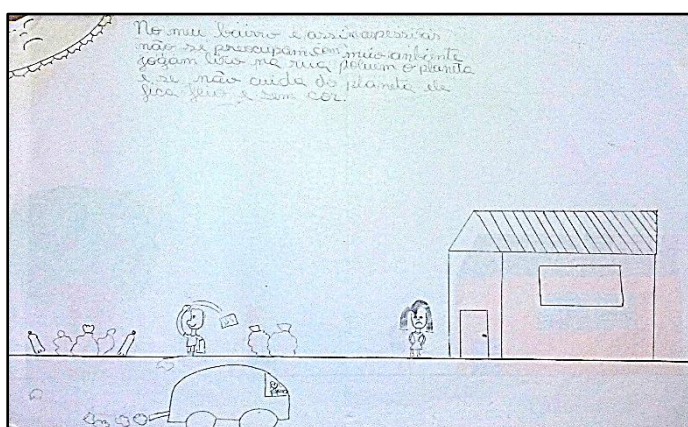 No meu bairro e assim as pessoas
não se preocupam com meio ambiente
jogam lixo na rua poluem o planeta
e se não cuida do planeta ele
fica feio e sem cor.